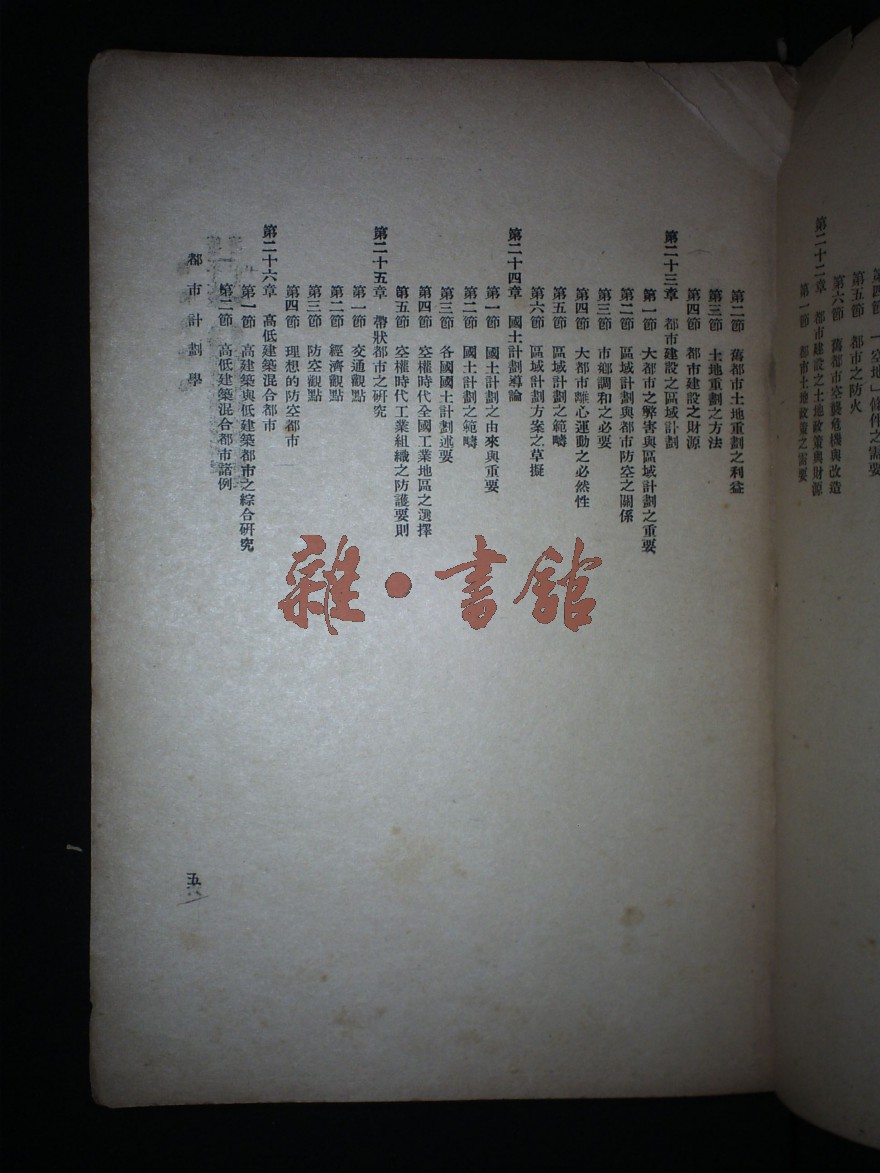 第四節　「空地」條件之需要
第五節　都市之防火
第六節　舊都市空襲危機與改造
第二十二章　都市建設之土地政策與財源
第一節　都市土地政策之需要
第二節　舊都市土地重劃之利益
第三節　土地重劃之方法
第四節　都市建設之財源
第二十三章　都市建設之區域計劃
第一節　大都市之弊害與區域計劃之重要
第二節　區域計劃與都市防空之關係
第三節　市鄉調和之必要
第四節　大都市離心運動之必然性
第五節　區域計劃之範疇
第六節　區域計劃方案之草擬
第二十四章　國土計劃導論
第一節　國土計劃之由來與重要
第二節　國土計劃之範疇
第三節　各國國土計劃述要
第四節　空權時代全國工業地區之選擇
第五節　空權時代工業組織之防護要則
第二十五章　帶狀都市之研究
第一節　交通觀點
第二節　經濟觀點
第三節　防空觀點
第四節　理想的防空都市
第二十六章　高低建築混合都市
第一節　高建築與低建築都市之綜合研究
第二節　高低建築混合都市諸例
都市計劃學
五
雜·書館